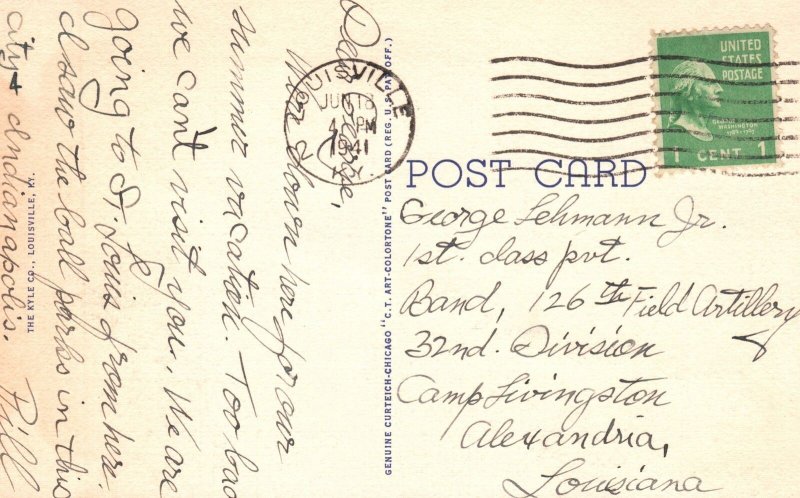 Dear George,
We're down here for our
summer vacation. Too bad
we can't visit you. We are
going to St. Louis from here.
I saw the ball parks in this
city & Indianapolis. Bill
THE KYLE CO., LOUISVILLE, KY.
GENUINE CURTEICH-CHICAGO "C.T. ART-COLORTONE" POST CARD (REG. U.S. PAT. OFF.)
LOUISVILLE
JUN 18
4 PM
1941
KY.
UNITED
STATES
POSTAGE
GEORGE
WASHINGTON
1 CENT 1
POST CARD
George Lehmann Jr.
1st. class pvt.
Band, 126th Field Artillery
32nd. Division
Camp Livingston
Alexandria,
Louisiana